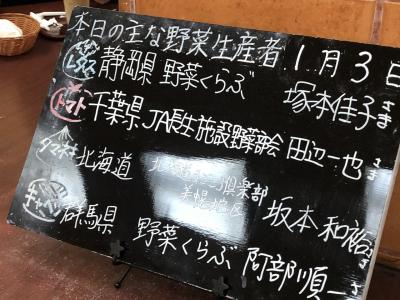 本日の主な野菜生産者 1月3日
レタス 静岡県 野菜くらぶ 塚本佳子さま
トマト 千葉県 JA長生施設野菜部会 田辺一也さま
タマネギ 北海道 倶楽部 美幌地区 坂本和祐さま
キャベツ 群馬県 野菜くらぶ 阿部順一さま